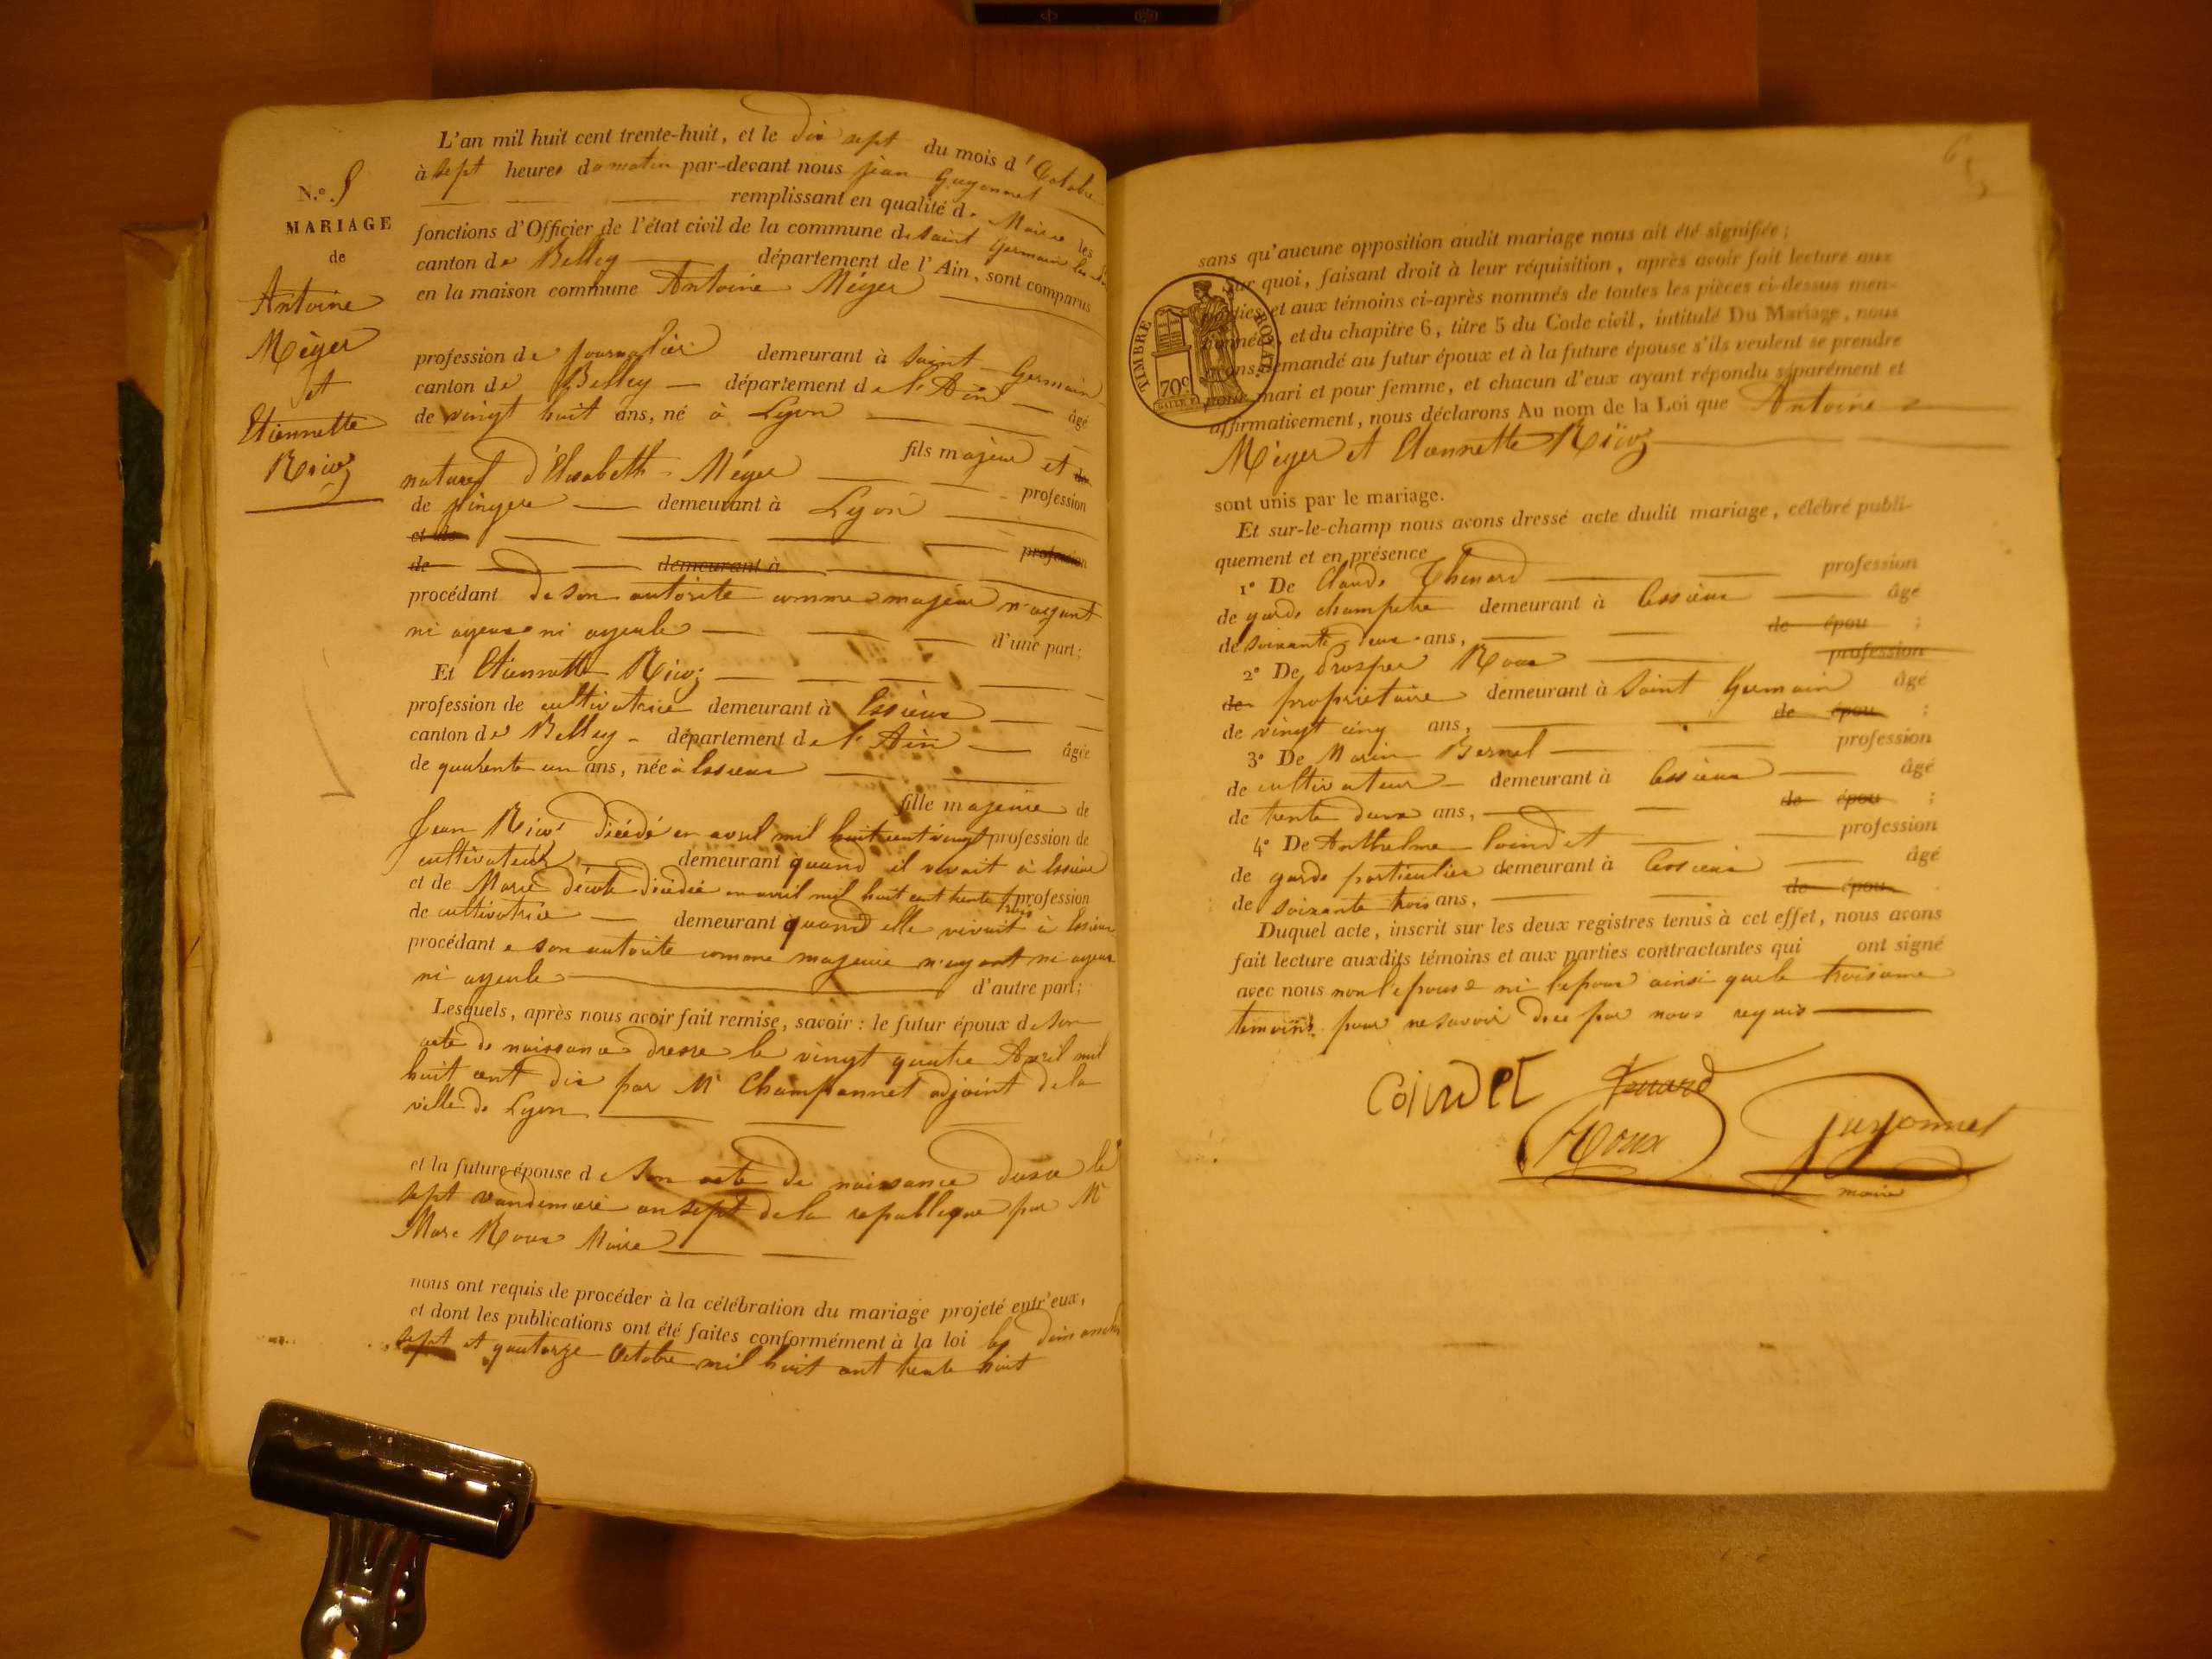 N.º 5
MARIAGE
de
Antoine
Méger
et
Etiennette
Ricoz
L'an mil huit cent trente-huit, et le dix sept du mois d'Octobre
à sept heures du matin par-devant nous jean Guyonnet
remplissant en qualité de Maire les
fonctions d'Officier de l'état civil de la commune de saint Germain les
canton de Belley département de l'Ain, sont comparus
en la maison commune Antoine Méger
profession de journalier demeurant à Saint Germain
canton de Belley département de l'Ain âgé
de vingt huit ans, né à Lyon
fils majeur et de
naturel d'Elisabeth Méger profession
de demeurant à Lyon
et de profession
de demeurant à
procédant de son autorité comme majeur n'ayant
ni ayeux ni ayeule d'une part;
Et Etiennette Ricoz
profession de cultivatrice demeurant à Essieux
canton de Belley département de l'Ain âgée
de quarente un ans, née à Essieux
fille majeure de
Jean Ricoz décédé en avril mil huit cent vingt profession de
cultivateur demeurant quand il vivait à Essieux
et de Marie décédée en avril mil huit cent trente trois profession
de cultivatrice demeurant quand elle vivait à Essieux
procédant e son autorité comme majeure n'ayant ni ayeux
ni ayeule d'autre part;
Lesquels, après nous avoir fait remise, savoir : le futur époux de son
acte de naissance dressé le vingt quatre Avril mil
huit cent dix par Mr Champannet adjoint de la
ville de Lyon
et la future épouse de son acte de naissance dressé le
sept vandemiere an sept de la republique par Mr
Marc Roux Maire
nous ont requis de procéder à la célébration du mariage projeté entr'eux,
et dont les publications ont été faites conformément à la loi les dimanches
sept et quatorze Octobre mil huit cent trente huit
sans qu'aucune opposition audit mariage nous ait été signifiée ;
Sur quoi, faisant droit à leur réquisition, après avoir fait lecture aux
parties et aux témoins ci-après nommés de toutes les pièces ci-dessus men-
tionnées, et du chapitre 6, titre 5 du Code civil, intitulé Du Mariage, nous
avons demandé au futur époux et à la future épouse s'ils veulent se prendre
pour mari et pour femme, et chacun d'eux ayant répondu séparément et
affirmativement, nous déclarons Au nom de la Loi que Antoine
Méger et Etiennette Ricoz
TIMBRE ROYAL.
70c.
sont unis par le mariage.
Et sur-le-champ nous avons dressé acte dudit mariage, célébré publi-
quement et en présence
1º De Claude Thenard profession
de garde champetre demeurant à Essieux âgé
de soixante deux ans, de épou ;
2º De Prosper Roux profession
de propriétaire demeurant à Saint Germain âgé
de vingt cinq ans, de épou ;
3º De Marin Bernel profession
de cultivateur demeurant à Essieux âgé
de trente deux ans, de épou ;
4º De Anthelme Coindet profession
de garde particulier demeurant à Essieux âgé
de soixante trois ans, de épou .
Duquel acte, inscrit sur les deux registres tenus à cet effet, nous avons
fait lecture auxdits témoins et aux parties contractantes qui ont signé
avec nous non l'epouse ni l'epoux ainsi que le troisieme
temoins pour ne savoir dece par nous requis
Coindet Tenard
Roux Guyonnet
maire